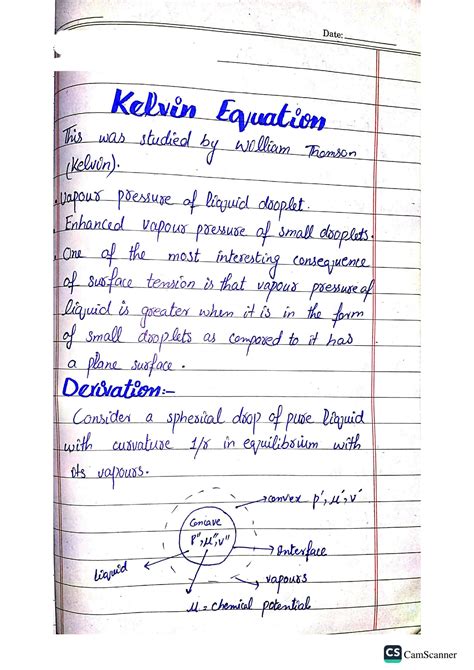 Date:
Kelvin Equation
This was studied by William Thomson
(Kelvin).
Vapour pressure of liquid droplet.
Enhanced vapour pressure of small droplets.
One of the most interesting consequence
of surface tension is that vapour pressure of
liquid is greater when it is in the form
of small droplets as compared to it has
a plane surface.
Derivation:-
Consider a spherical drop of pure liquid
with curvature 1/r in equilibrium with
its vapours.
convex p', μ', v'
Concave
P", μ", v"
Interface
liquid
vapours
μ = chemical potential
CS CamScanner